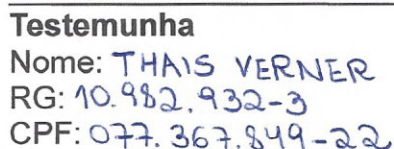 Testemunha
Nome: THAIS VERNER
RG: 10.982.932-3
CPF: 077.367.849-22